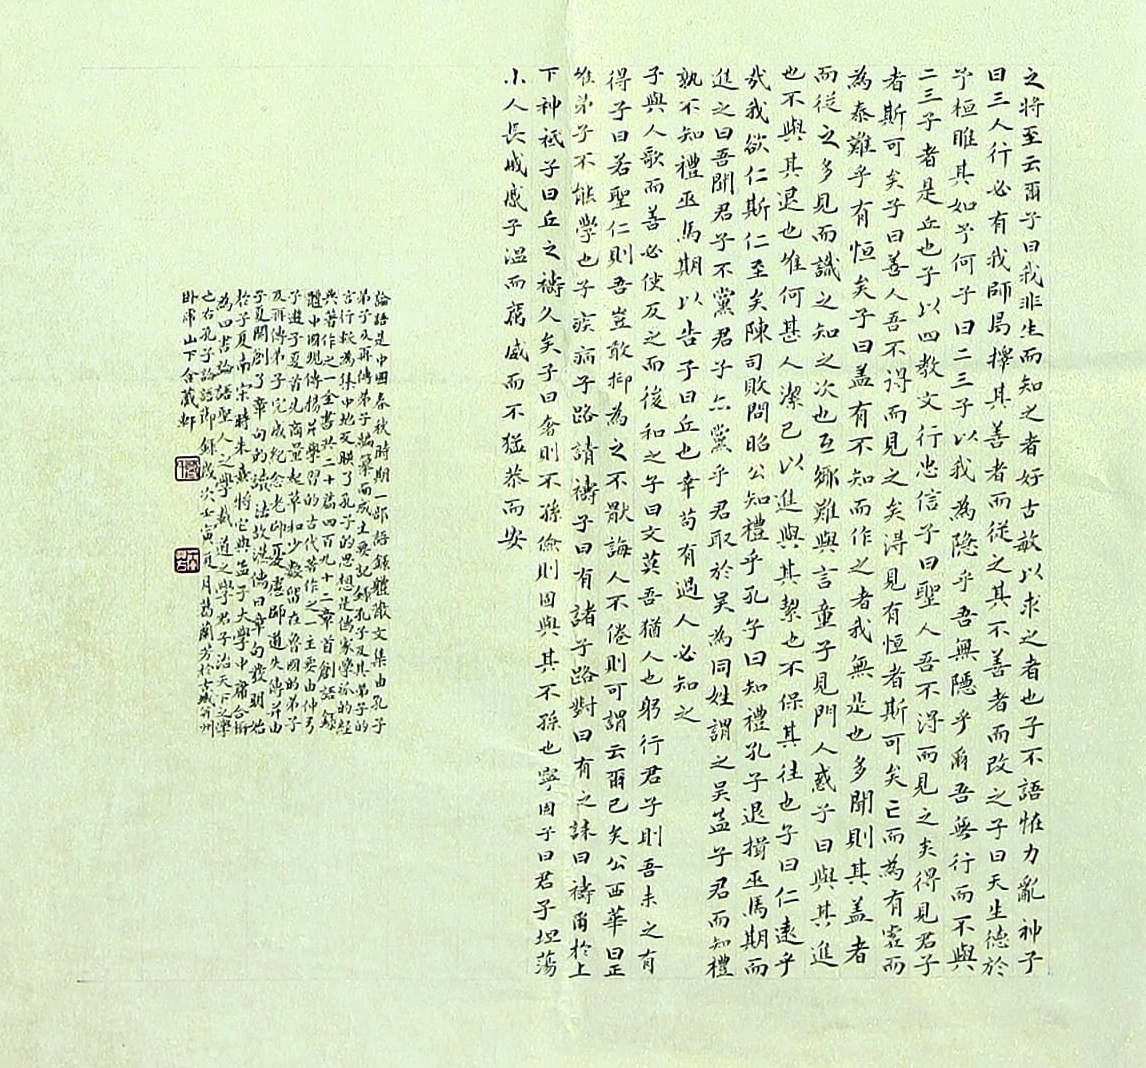 之將至云爾子曰我非生而知之者好古敏以求之者也子不語恠力亂神子
曰三人行必有我師焉擇其善者而從之其不善者而改之子曰天生德於
予桓雎其如予何子曰二三子以我為隐乎吾無隱乎爾吾無行而不與
二三子者是丘也子以四教文行忠信子曰聖人吾不得而見之矣得見君子
者斯可矣子曰善人吾不得而見之矣得見有恒者斯可矣亡而為有虛而
為泰難乎有恒矣子曰盖有不知而作之者我無是也多聞則其盖者
而從之多見而識之知之次也互鄉難與言童子見門人惑子曰與其進
也不與其退也唯何甚人潔己以進與其絜也不保其往也子曰仁遠乎
哉我欲仁斯仁至矣陳司敗問昭公知禮乎孔子曰知禮孔子退揖巫馬期而
進之曰吾聞君子不黨君子亦黨乎君取於吴為同姓謂之吴孟子君而知禮
孰不知禮巫馬期以告子曰丘也幸苟有過人必知之
子與人歌而善必使反之而後和之子曰文莫吾猶人也躬行君子則吾未之有
得子曰若聖仁則吾豈敢抑為之不厭誨人不倦則可謂云爾已矣公西華曰正
唯弟子不能學也子疾病子路請禱子曰有諸子路對曰有之誄曰禱爾於上
下神祇子曰丘之禱久矣子曰奢則不孫儉則固與其不孫也寧固子曰君子坦荡
小人長戚戚子温而厲威而不猛恭而安
論語是中國春秋時期一部語錄體散文集由孔子
弟子及再傳弟子編纂而成主要記錄孔子及其弟子的
言行較為集中地反映了孔子的思想是儒家學派的經
典著作之一全書共二十篇四百九十二章首創語錄
體中國現傳揚并學習的古代著作之一主要由仲弓
子游子夏首先商量起草和少數留在魯國的弟子
及再傳弟子完成紀念老師憂慮師道失傳并由
子夏開創了章句的流法故洪儒曰章句發明始
於子夏南宋時朱熹將它與孟子大學中庸合稱
為四書論語聖人之學載道之學君子治天下之學
之右孔子論語節錄歲次壬寅夏月葛蘭芳於古城沂州
卧帝山下合藏軒